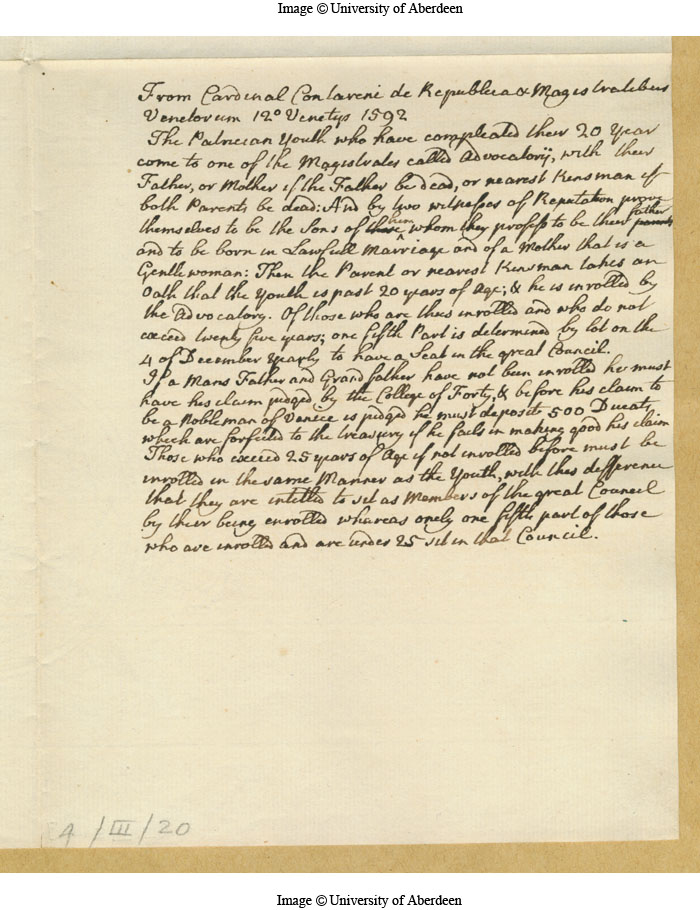 Image © University of Aberdeen
From Cardinal Contareni de Republica & Magistratibus
Venetorum 12º Venetys 1592
The Patrician Youth who have compleated their 20 Year
come to one of the Magistrates called Advocatorij, with their
Father, or Mother if the Father be dead, or nearest Kinsman if
both Parents be dead: And by two witnesses of Reputation prove
themselves to be the Sons of these him whom they profess to be their parents father
and to be born in Lawfull Marriage and of a Mother that is a
Gentlewoman: Then the Parent or nearest Kinsman takes an
Oath that the Youth is past 20 years of Age; & he is inrolled by
the Advocatory. Of those who are thus inrolled and who do not
exceed twenty five years; one fifth Part is determined by lot on the
4 of December Yearly to have a Seat in the great Council.
If a Mans Father and Grandfather have not been inrolled he must
have his claim judged by the College of Forty, & before his claim to
be a Nobleman of Venice is judged he must deposite 500 Ducats
which are forfeited to the treasury if he fails in making good his claim
Those who exceed 25 years of Age if not inrolled before must be
inrolled in the same Manner as the Youth, with this difference
that they are intitled to sit as Members of the great Council
by their being enrolled whereas onely one fifth part of those
who are inrolled and are under 25 sit in that Council.
4/III/20
Image © University of Aberdeen